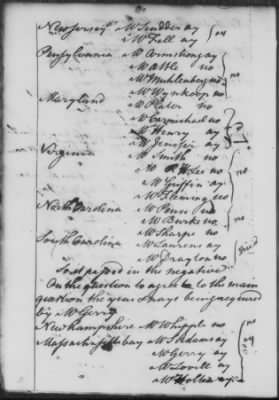 New Jersey Mr Scudder ay } ay
Mr Fell ay
Pensylvania Mr Armstrong ay
Mr Atlee no
Mr Muhlenberg no } no
Mr Wynkoop no
Maryland Mr Plater no
Mr Carmichael no
Mr Henry ay
Mr Jenifer ay
Virginia Mr Smith no
Mr R H Lee no } no
Mr Griffin ay
Mr Fleming no
North Carolina Mr Penn no
Mr Burke no } no
Mr Sharpe no
South Carolina Mr Laurens ay } divid
Mr Drayton no
So it passed in the negative
On the question to agree to the main
question the yeas & nays being required
by Mr Gerry
New hampshire Mr Whipple no } no
Massachusetts bay Mr S Adams ay
Mr Gerry ay } ay
Mr Lovell ay
Mr Holten ay